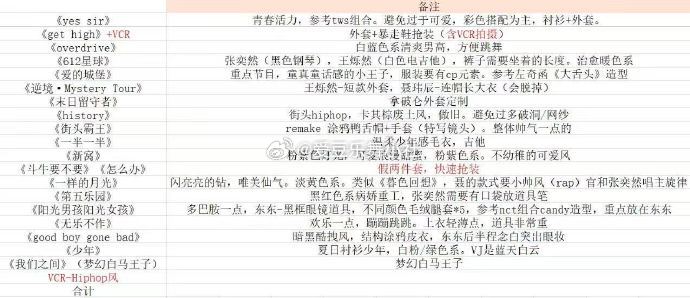 备注
《yes sir》 青春活力，参考tws组合。避免过于可爱，彩色搭配为主，衬衫+外套。
《get high》+VCR 外套+暴走鞋抢装（含VCR拍摄）
《overdrive》 白蓝色系清爽男高，方便跳舞
《612星球》 张奕然（黑色钢琴），王烁然（白色电吉他），裤子需要坐着的长度。治愈暖色系
《爱的城堡》 重点节目，童真童话感的小王子，服装要有cp元素。参考左奇函《大舌头》造型
《逆境·Mystery Tour》 王烁然-短款外套，聂玮辰-连帽长大衣（会脱掉）
《末日留守者》 拿破仑外套定制
《history》 街头hiphop，卡其棕废土风，做旧。避免过多破洞/网纱
《街头霸王》 remake 涂鸦鸭舌帽+手套（特写镜头）。整体帅气一点的
《一半一半》 温柔少年感毛衣，吉他
《新窝》 粉紫色，粉紫色系。不幼稚的可爱风
《斗牛要不要》《怎么办》 假两件套，快速抢装
《一样的月光》 闪亮亮的钻，唯美仙气。淡黄色系。类似《暮色回想》，聂的款式要小帅风（rap）官和张奕然唱主旋律
《第五乐园》 黑红色系病娇重工，张奕然需要有口袋放道具笔
《阳光男孩阳光女孩》 多巴胺一点，东东-黑框眼镜道具，不同颜色毛绒腿套*5，参考nct组合candy造型，重点放在东东
《无乐不作》 欢乐一点，蹦蹦跳跳。上衣轻薄点，道具非常重
《good boy gone bad》 暗黑酷拽风，结构涂鸦皮衣，东东后半程念白突出眼妆
《少年》 夏日衬衫少年，白粉/绿色系。VJ是蓝天白云
《我们之间》（梦幻白马王子） 梦幻白马王子
VCR-Hiphop风
合计